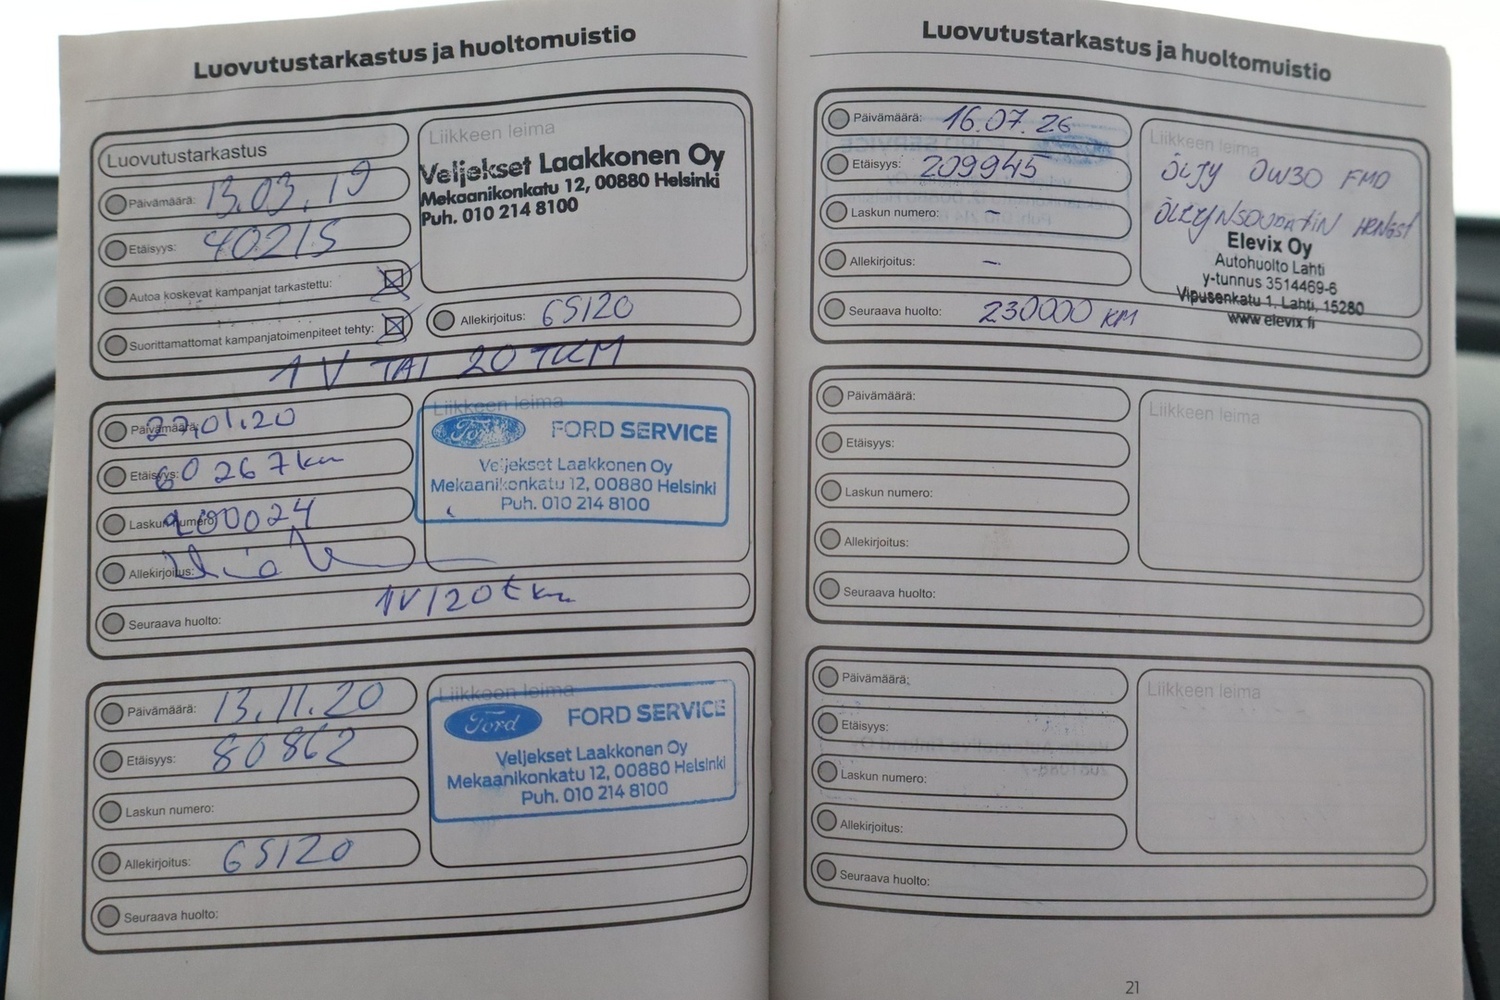 Luovutustarkastus ja huoltomuistio
Luovutustarkastus
Päivämäärä: 13.03.19
Etäisyys: 40215
Autoa koskevat kampanjat tarkastettu:
Suorittamattomat kampanjatoimenpiteet tehty:
Liikkeen leima
Veljekset Laakkonen Oy
Mekaanikonkatu 12, 00880 Helsinki
Puh. 010 214 8100
Allekirjoitus: GS120
1 V TAI 20 TKM
Päivämäärä: 27.01.20
Etäisyys: 60 267 km
Laskun numero:
Allekirjoitus:
Seuraava huolto: 1V/20tkm
Liikkeen leima
Ford FORD SERVICE
Veljekset Laakkonen Oy
Mekaanikonkatu 12, 00880 Helsinki
Puh. 010 214 8100
Päivämäärä: 13.11.20
Etäisyys: 80862
Laskun numero:
Allekirjoitus: GS120
Seuraava huolto:
Liikkeen leima
Ford FORD SERVICE
Veljekset Laakkonen Oy
Mekaanikonkatu 12, 00880 Helsinki
Puh. 010 214 8100
Luovutustarkastus ja huoltomuistio
Päivämäärä: 16.07.26
Etäisyys: 209945
Laskun numero: -
Allekirjoitus: -
Seuraava huolto: 230000 KM
Liikkeen leima
ÖLJY 0W30 FMD
HENGST
Elevix Oy
Autohuolto Lahti
y-tunnus 3514469-6
Vipusenkatu 1, Lahti, 15280
www.elevix.fi
Päivämäärä:
Etäisyys:
Laskun numero:
Allekirjoitus:
Seuraava huolto:
Liikkeen leima
Päivämäärä:
Etäisyys:
Laskun numero:
Allekirjoitus:
Seuraava huolto:
Liikkeen leima
21